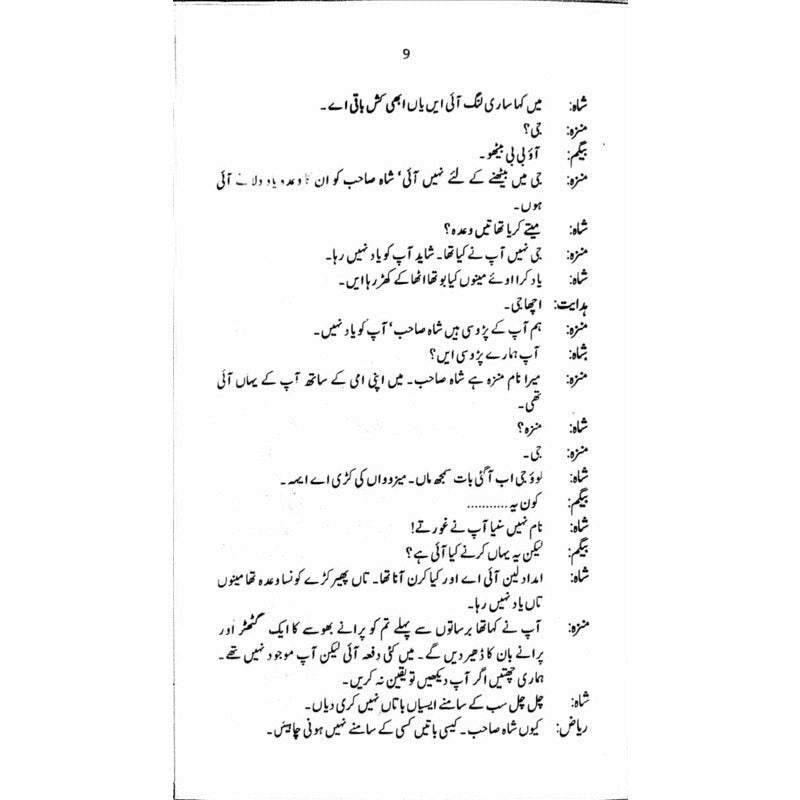 9
شاہ: میں کہا ساری لنگ آئی ایں یاں ابھی کش باقی اے۔
منزہ: جی؟
بیگم: آؤ بی بی بیٹھو۔
منزہ: جی میں بیٹھنے کے لئے نہیں آئی‘ شاہ صاحب کو ان کا وعدہ یاد دلانے آئی
ہوں۔
شاہ: میتے کریا تھا تیں وعدہ؟
منزہ: جی نہیں آپ نے کیا تھا۔ شاید آپ کو یاد نہیں رہا۔
شاہ: یاد کرا اوئے مینوں کیا بوتھا اٹھا کے کھڑ رہا ایں۔
ہدایت: اچھا جی۔
منزہ: ہم آپ کے پڑوسی ہیں شاہ صاحب‘ آپ کو یاد نہیں۔
شاہ: آپ ہمارے پڑوسی ایں؟
منزہ: میرا نام منزہ ہے شاہ صاحب۔ میں اپنی امی کے ساتھ آپ کے یہاں آئی
تھی۔
شاہ: منزہ؟
منزہ: جی۔
شاہ: لوؤ جی اب آ گئی بات سمجھ ماں۔ میزوواں کی کڑی اے ایہہ۔
بیگم: کون یہ...........
شاہ: نام نہیں سنیا آپ نے غور تے!
بیگم: لیکن یہ یہاں کرنے کیا آئی ہے؟
شاہ: امداد لین آئی اے اور کیا کرن آنا تھا۔ تاں پھیر کڑے کونسا وعدہ تھا مینوں
تاں یاد نہیں رہا۔
منزہ: آپ نے کہا تھا برساتوں سے پہلے تم کو پرانے بھوسے کا ایک گٹھڑ اور
پرانے بان کا ڈھیر دیں گے۔ میں کئی دفعہ آئی لیکن آپ موجود نہیں تھے۔
ہماری چھتیں اگر آپ دیکھیں تو یقین نہ کریں۔
شاہ: چل چل سب کے سامنے ایسیاں باتاں نہیں کری دیاں۔
ریاض: کیوں شاہ صاحب۔ کیسی باتیں کسی کے سامنے نہیں ہونی چاہیئں۔